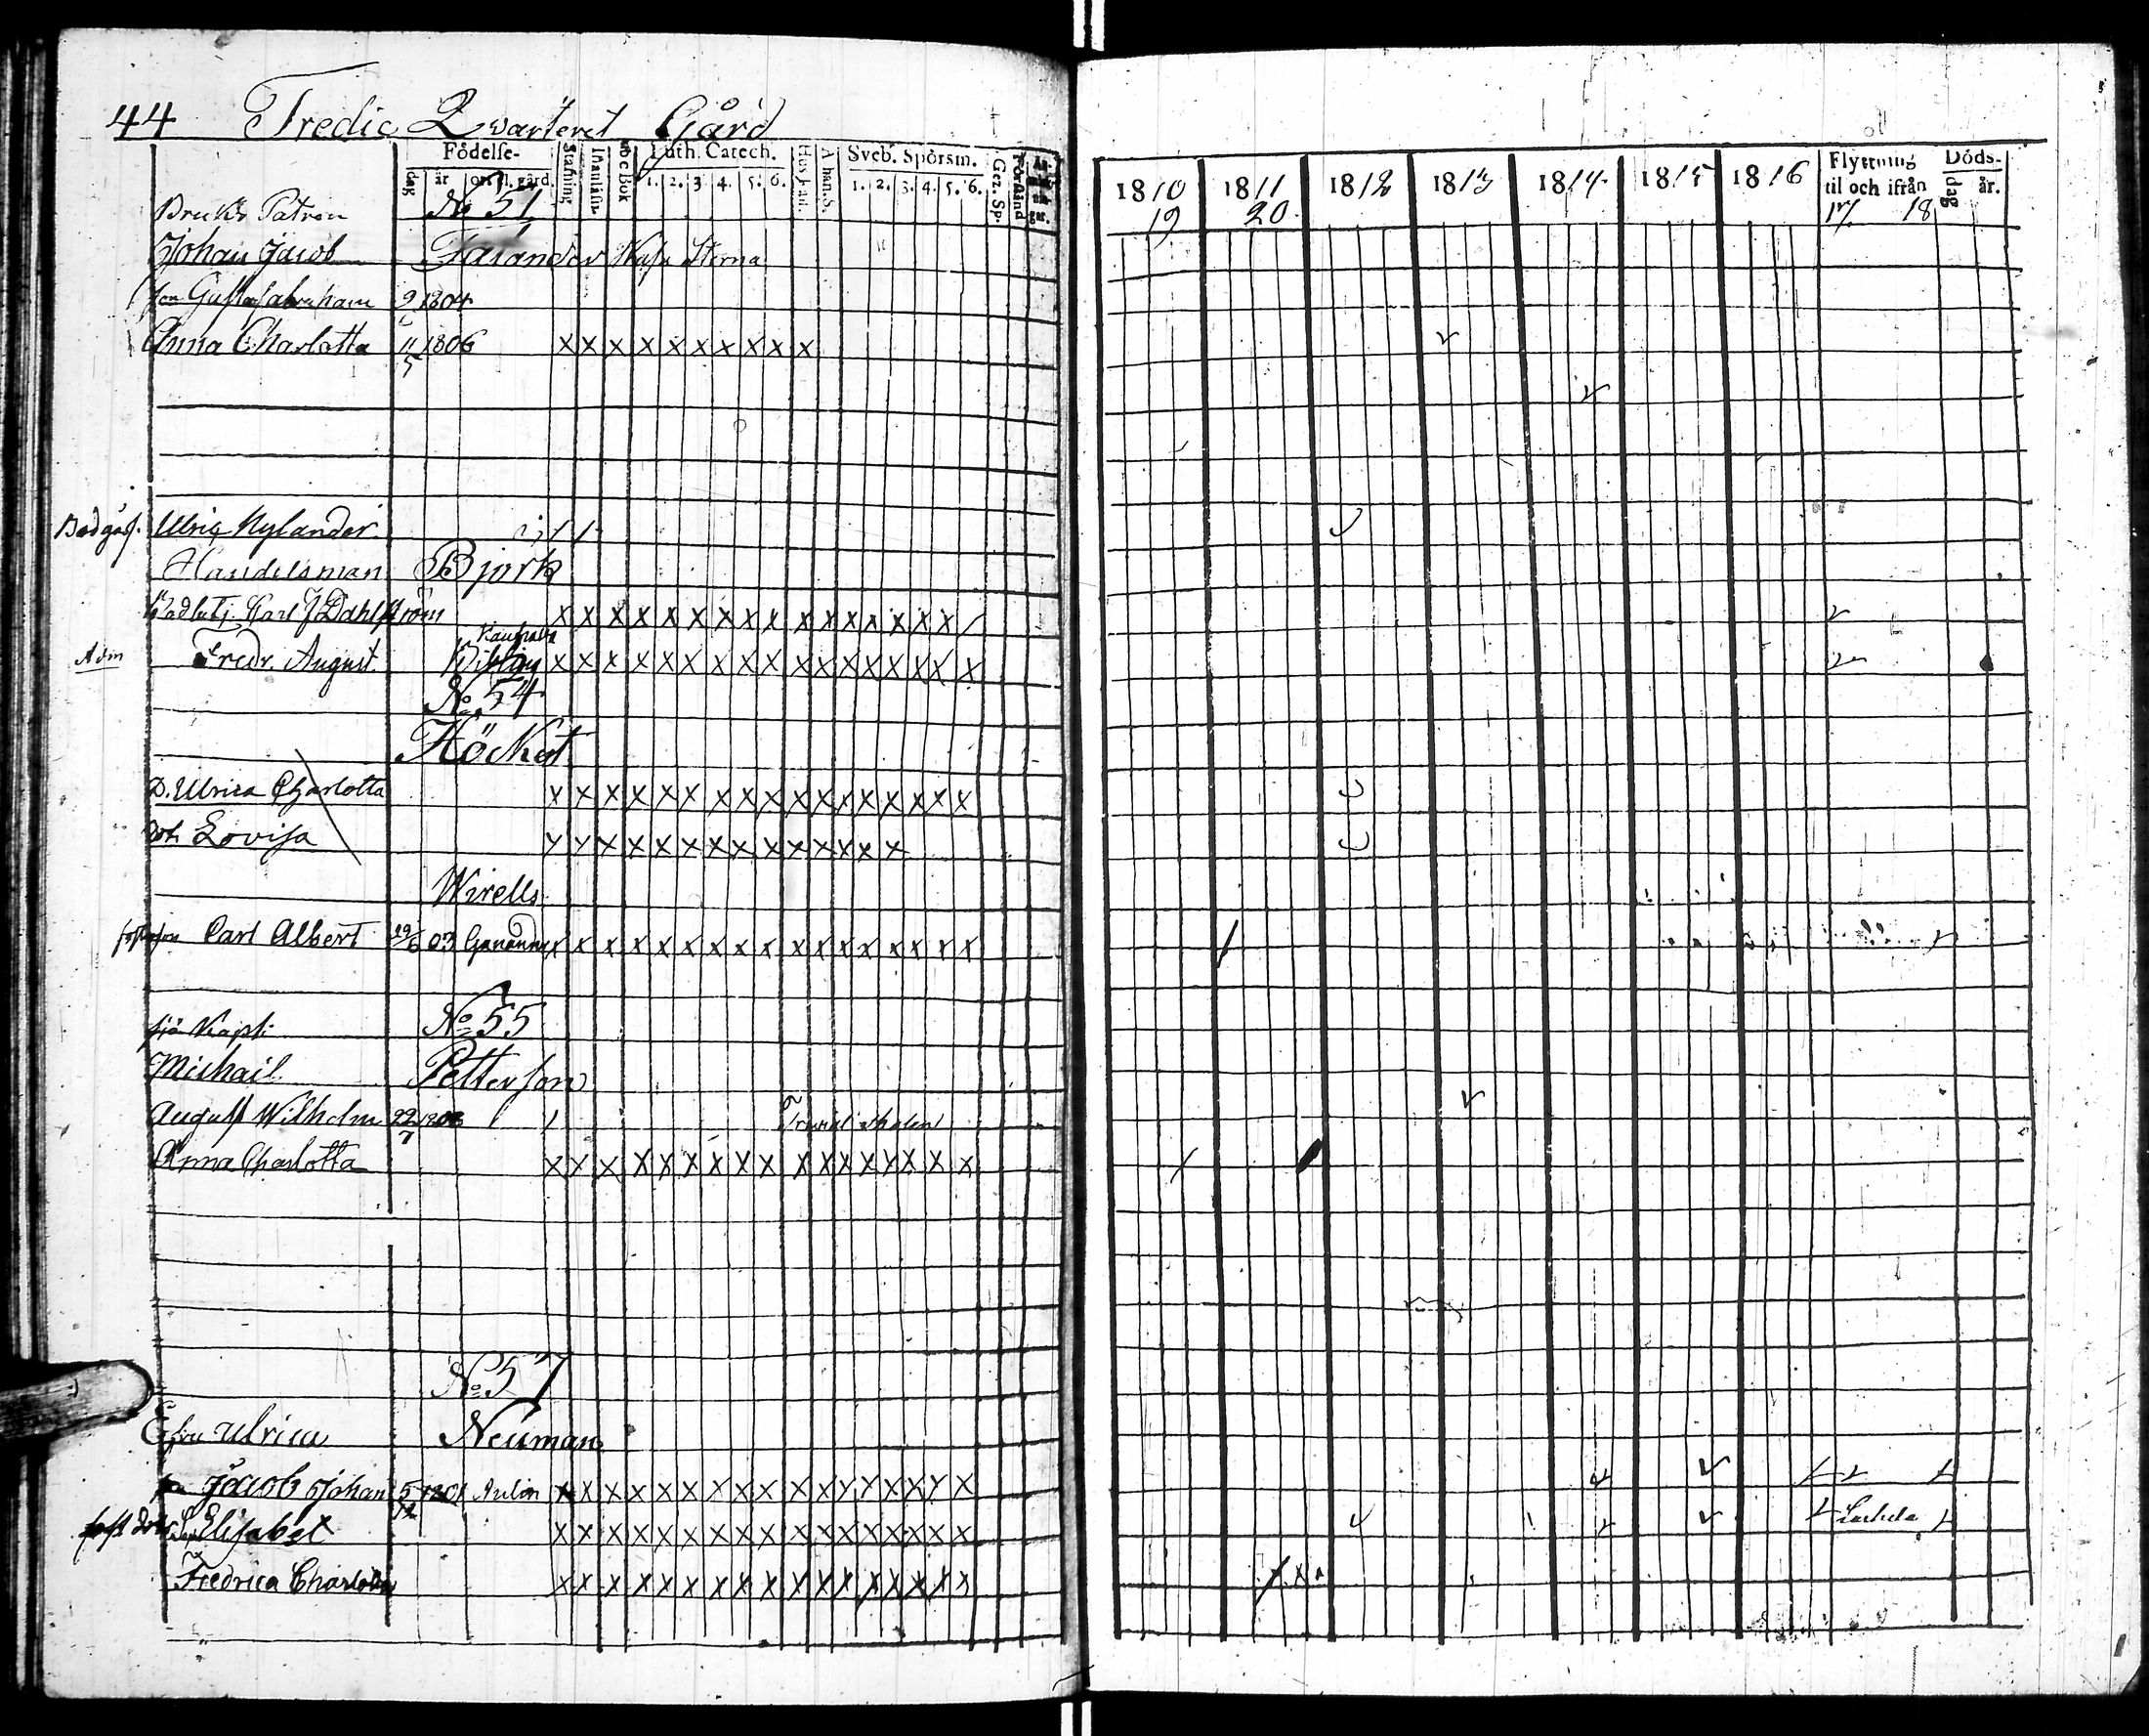 44 Tredie Qvarteret Gård
Födelse- Stafning Innanläsn. Luth. Catech. Sveb. Spörsm. Gez. Sp. Förstånd
dag år ort fl. gård. 1. 2. 3 4. 5. 6. 1. 2. 3. 4. 5. 6.
1810 1811 1812 1813 1814 1815 1816 Flyttning til och ifrån Döds- dag år.
19 20 17 18
Bruks Patron No 51
Johan Jacob Falander Wasa Stierna
son Gustaf abraham 9 1804
Anna Charlotta 11/5 1806 x x x x x x x x x x
Ulric Nylander
Handelsman Björk
Carl J Dahlström x x x x x x x x x x x x x x x x
Adm Fredr. August x x x x x x x x x x x x x x x x x
No 54
Höckert
D. Ulrica Charlotta x x x x x x x x x x x x x x x x x
Dot Lovisa x x x x x x x x x x x x x x
Wirells
fosterson Carl Albert 29/6 03 x x x x x x x x x x x x x x x x x
sjö Kapt: No 55
Michail Petterson
August Wilhelm 22/7 1803 skolen
Anna Charlotta x x x x x x x x x x x x x x x x x
No 57
Enkefru Ulrica Neuman
son Jacob Johan 5 1801 Aulin x x x x x x x x x x x x x x x x x
fost dotr Elisabet x x x x x x x x x x x x x x x x x
Fredrica Charlotta x x x x x x x x x x x x x x x x x